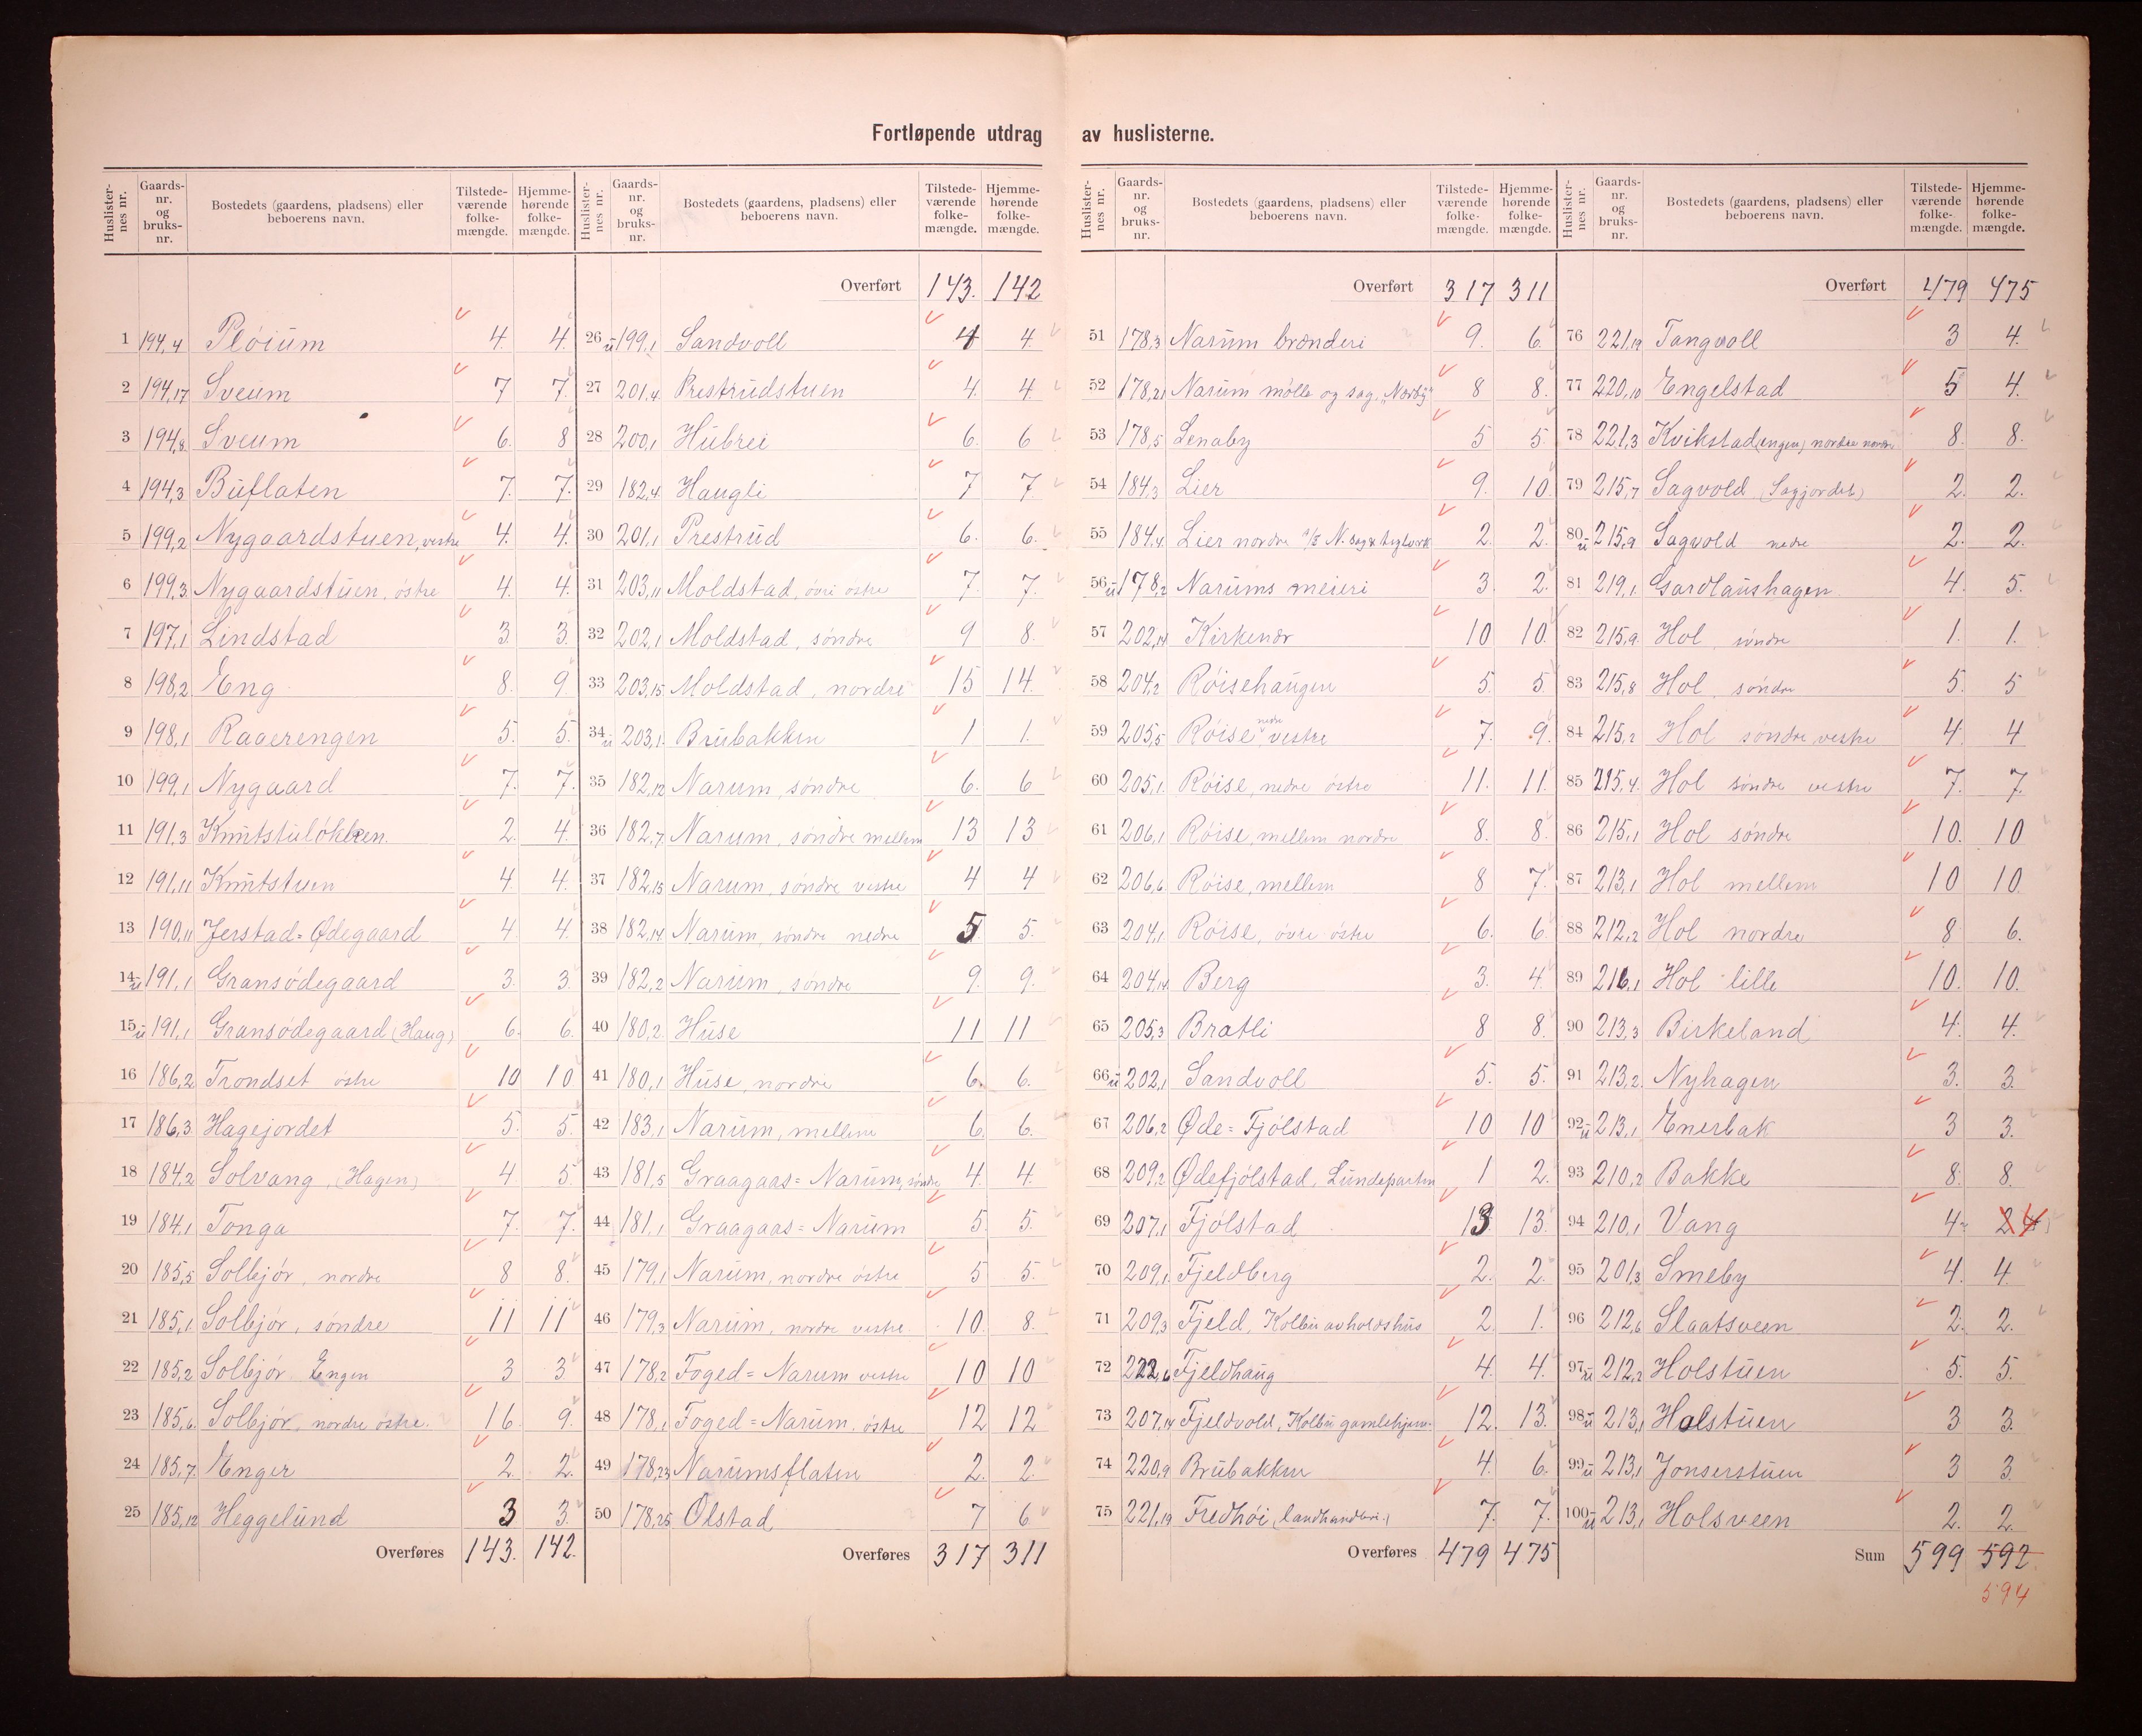 Fortløpende utdrag av huslisterne.
Huslisternes nr. Gaards-nr. og bruks-nr. Bostedets (gaardens, pladsens) eller beboerens navn. Tilstedeværende folkemængde. Hjemmehørende folkemængde.
1 194,4 Pløium 4. 4.
2 194,17 Sveum 7 7.
3 194,8 Sveum 6. 8
4 194,3 Buflaten 7. 7.
5 199,2 Nygaardstuen, vestre 4. 4.
6 199,3 Nygaardstuen, østre 4. 4.
7 197,1 Lindstad 3. 3.
8 198,2 Eng 8. 9.
9 198,1 Raaerengen 5. 5.
10 199,1 Nygaard 7. 7.
11 191,3 Knutstuløkken. 2. 4.
12 191,11 Knutstuen 4. 4.
13 190,11 Jerstad=Ødegaard 4. 4.
14 u 191,1 Gransødegaard 3. 3.
15 u 191,1 Gransødegaard (Haug) 6. 6.
16 186,2 Trondset østre 10 10
17 186,3 Hagejordet 5. 5.
18 184,2 Solvang, (Hagen) 4 5.
19 184,1 Tonga 7. 7.
20 185,5 Solbjør, nordre 8 8.
21 185,1 Solbjør, søndre 11 11
22 185,2 Solbjør Engen 3 3
23 185,6 Solbjør, nordre østre. 16. 9.
24 185,7 Enger 2. 2.
25 185,12 Heggelund 3 3.
Overføres 143. 142.
Huslisternes nr. Gaards-nr. og bruks-nr. Bostedets (gaardens, pladsens) eller beboerens navn. Tilstedeværende folkemængde. Hjemmehørende folkemængde.
Overført 143. 142
26 u 199,1 Sandvoll 4 4.
27 201,4 Prestrudstuen 4. 4.
28 200,1 Hubrei 6. 6
29 182,4 Haugli 7 7
30 201,1 Prestrud 6. 6.
31 203,11 Moldstad, øvri østre 7. 7.
32 202,1 Moldstad, søndre 9 8.
33 203,15 Moldstad, nordre 15 14.
34 u 203,1 Brubakken 1 1.
35 182,12 Narum, søndre 6. 6
36 182,7 Narum, søndre mellem 13 13
37 182,13 Narum, søndre vestre 4 4
38 182,14 Narum, søndre nedre 5 5.
39 182,2 Narum, søndre 9. 9.
40 180,2 Huse 11 11
41 180,1 Huse, nordre 6. 6.
42 183,1 Narum, mellem 6. 6.
43 181,5 Graagaas=Narum, søndre 4. 4.
44 181,1 Graagaas=Narum 5. 5.
45 179,1 Narum, nordre østre 5 5.
46 179,3 Narum, nordre vestre 10. 8.
47 178,2 Foged=Narum vestre 10 10
48 178,1 Foged=Narum, østre 12 12
49 178,23 Narumsflaten 2. 2.
50 178,25 Olstad 7 6
Overføres 317 311
Huslisternes nr. Gaards-nr. og bruks-nr. Bostedets (gaardens, pladsens) eller beboerens navn. Tilstedeværende folkemængde. Hjemmehørende folkemængde.
Overført 317 311
51 178,3 Narum brænderi 9. 6.
52 178,21 Narum mølle og sag, „Nordby" 8 8.
53 178,5 Lenaby 5 5.
54 184,3 Lier 9. 10.
55 184,4 Lier nordre A/S N. sag & teglverk 2. 2.
56 u 178,2 Narums meieri 3. 2.
57 202,14 Kirkenær 10 10.
58 204,2 Røisehaugen 5. 5.
59 205,5 Røise nedre vestre 7. 9.
60 205,1. Røise, nedre østre 11. 11.
61 206,1 Røise, mellem nordre 8. 8.
62 206,6 Røise, mellem 8 7.
63 204,1 Røise, øvre østre 6. 6.
64 204,14 Berg 3. 4.
65 205,3 Bratli 8 8.
66 u 202,1 Sandvoll 5. 5.
67 206,2 Øde=Fjølstad 10 10
68 209,2 Ødefjølstad, Lundeparten 1 2.
69 207,1 Fjølstad 13 13.
70 209,1. Fjeldberg 2. 2.
71 209,3 Fjeld, Kolbu avholdshus 2. 1.
72 222,6 Fjeldhaug 4. 4.
73 207,14 Fjeldvold, Kolbu gamlehjem. 12. 13.
74 220,9 Brubakken 4. 6.
75 221,19 Fredhøi (landhandleri.) 7. 7.
Overføres 479 475
Huslisternes nr. Gaards-nr. og bruks-nr. Bostedets (gaardens, pladsens) eller beboerens navn. Tilstedeværende folkemængde. Hjemmehørende folkemængde.
Overført 479 475
76 221,19 Tangvoll 3 4.
77 220,10 Engelstad 5 4.
78 221,3 Kvikstad(engen) nordre 8. 8.
79 215,7 Sagvold (Sagjordet) 2. 2.
80 u 215,9 Sagvold nedre 2. 2.
81 219,1. Gardlaushagen 4. 5.
82 215,9. Hol søndre 1. 1.
83 215,8 Hol, søndre 5. 5
84 215,2 Hol søndre vestre 4. 4
85 215,4. Hol søndre vestre 7. 7.
86 215,1 Hol søndre 10. 10
87 213,1 Hol mellem 10 10.
88 212,2 Hol nordre 8 6.
89 216,1 Hol lille 10. 10.
90 213,3 Birkeland 4. 4.
91 213,2. Nyhagen 3. 3.
92 u 213,1 Enerbak 3 3.
93 210,2 Bakke 8. 8.
94 210,1 Vang 4. 2 4
95 201,3 Smeby 4. 4.
96 212,6 Slaatsveen 2. 2.
97 u 212,2 Holstuen 5. 5.
98 u 213,1 Holstuen 3 3.
99 u 213,1 Jonserstuen 3 3.
100 u 213,1 Holsveen 2. 2.
Sum 599 592
594